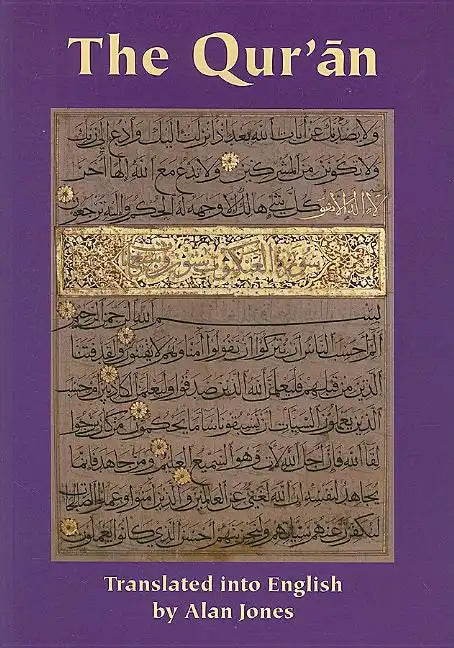 The Qur'ān
ولا يصدنك عن آيات الله بعد إذ أنزلت إليك وادع إلى ربك
ولا تكونن من المشركين ولا تدع مع الله إلها آخر
لا إله إلا هو كل شيء هالك إلا وجهه له الحكم وإليه ترجعون
سورة العنكبوت
بسم الله الرحمن الرحيم
الم أحسب الناس أن يتركوا أن يقولوا آمنا وهم لا يفتنون ولقد فتنا
الذين من قبلهم فليعلمن الله الذين صدقوا وليعلمن الكاذبين أم حسب
الذين يعملون السيئات أن يسبقونا ساء ما يحكمون من كان يرجوا
لقاء الله فإن أجل الله لآت وهو السميع العليم ومن جاهد فإنما
يجاهد لنفسه إن الله لغني عن العالمين والذين آمنوا وعملوا الصالحات
لنكفرن عنهم سيئاتهم ولنجزينهم أحسن الذي كانوا يعملون
Translated into English
by Alan Jones